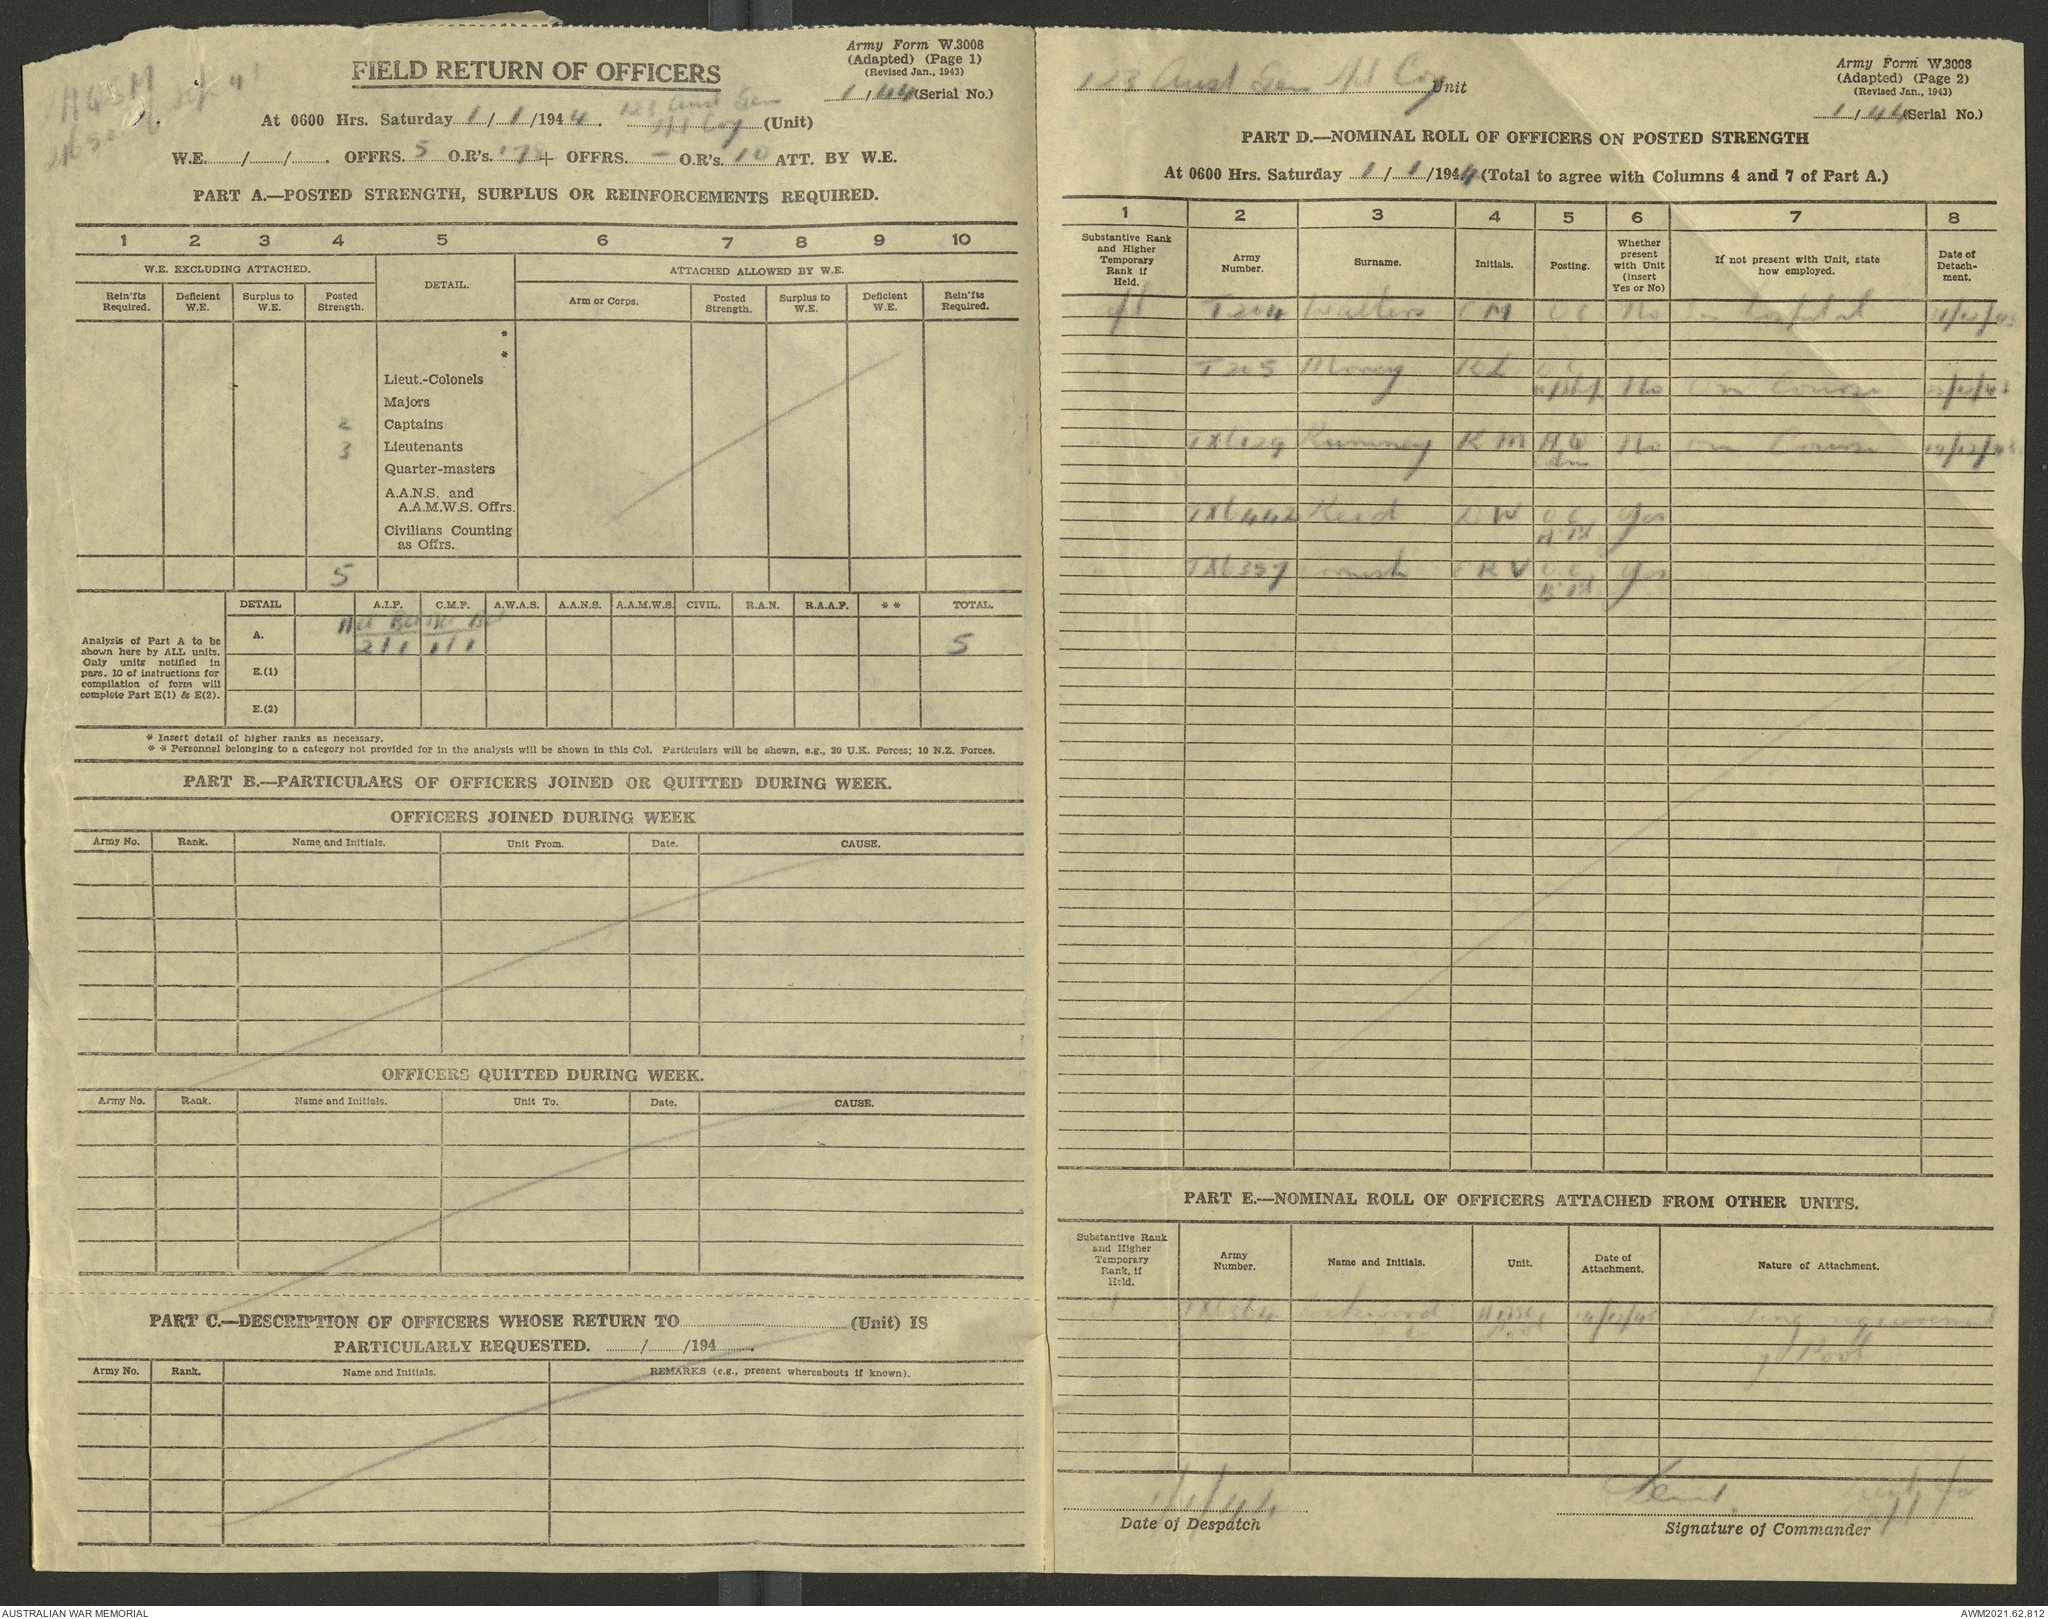 Army Form W.3008
(Adapted) (Page 1)
(Revised Jan., 1943)
FIELD RETURN OF OFFICERS
1/44 (Serial No.)
At 0600 Hrs. Saturday 1/1/1944. 123 Aust Gen
Tpt Coy (Unit)
W.E. / / . OFFRS. 5 O.R's. + OFFRS. – O.R's. 10 ATT. BY W.E.
PART A.—POSTED STRENGTH, SURPLUS OR REINFORCEMENTS REQUIRED.
1 2 3 4 5 6 7 8 9 10
W.E. EXCLUDING ATTACHED. DETAIL. ATTACHED ALLOWED BY W.E.
Rein'fts Required. Deficient W.E. Surplus to W.E. Posted Strength. Arm or Corps. Posted Strength. Surplus to W.E. Deficient W.E. Rein'fts Required.
*
*
Lieut.-Colonels
Majors
2 Captains
3 Lieutenants
Quarter-masters
A.A.N.S. and
A.A.M.W.S. Offrs.
Civilians Counting
as Offrs.
5
DETAIL A.I.F. C.M.F. A.W.A.S. A.A.N.S. A.A.M.W.S. CIVIL. R.A.N. R.A.A.F. ** TOTAL.
A. 2/1 1/1 5
E.(1)
E.(2)
Analysis of Part A to be
shown here by ALL units.
Only units notified in
pars. 10 of instructions for
compilation of form will
complete Part E(1) & E(2).
* Insert detail of higher ranks as necessary.
** Personnel belonging to a category not provided for in the analysis will be shown in this Col. Particulars will be shown, e.g., 20 U.K. Forces; 10 N.Z. Forces.
PART B.—PARTICULARS OF OFFICERS JOINED OR QUITTED DURING WEEK.
OFFICERS JOINED DURING WEEK
Army No. Rank. Name and Initials. Unit From. Date. CAUSE.
OFFICERS QUITTED DURING WEEK.
Army No. Rank. Name and Initials. Unit To. Date. CAUSE.
PART C.—DESCRIPTION OF OFFICERS WHOSE RETURN TO (Unit) IS
PARTICULARLY REQUESTED. / /194 .
Army No. Rank. Name and Initials. REMARKS (e.g., present whereabouts if known).
Army Form W.3008
(Adapted) (Page 2)
(Revised Jan., 1943)
123 Aust Gen Tpt Coy Unit
1/44 (Serial No.)
PART D.—NOMINAL ROLL OF OFFICERS ON POSTED STRENGTH
At 0600 Hrs. Saturday 1/1/1944 (Total to agree with Columns 4 and 7 of Part A.)
1 2 3 4 5 6 7 8
Substantive Rank and Higher Temporary Rank if Held. Army Number. Surname. Initials. Posting. Whether present with Unit (insert Yes or No) If not present with Unit, state how employed. Date of Detach-ment.
T204 Walters C M OC No In hospital
T205 K L No On Course
TX6129 Rumney K M HQ No On Course
TX6442 Reid W OC Yes
A Pl
TX6357 R V OC Yes
B Pl
PART E.—NOMINAL ROLL OF OFFICERS ATTACHED FROM OTHER UNITS.
Substantive Rank and Higher Temporary Rank, if Held. Army Number. Name and Initials. Unit. Date of Attachment. Nature of Attachment.
Lockwood
Pool
1/1/44
Lieut.
Date of Despatch
Signature of Commander
AUSTRALIAN WAR MEMORIAL
AWM2021.62.812